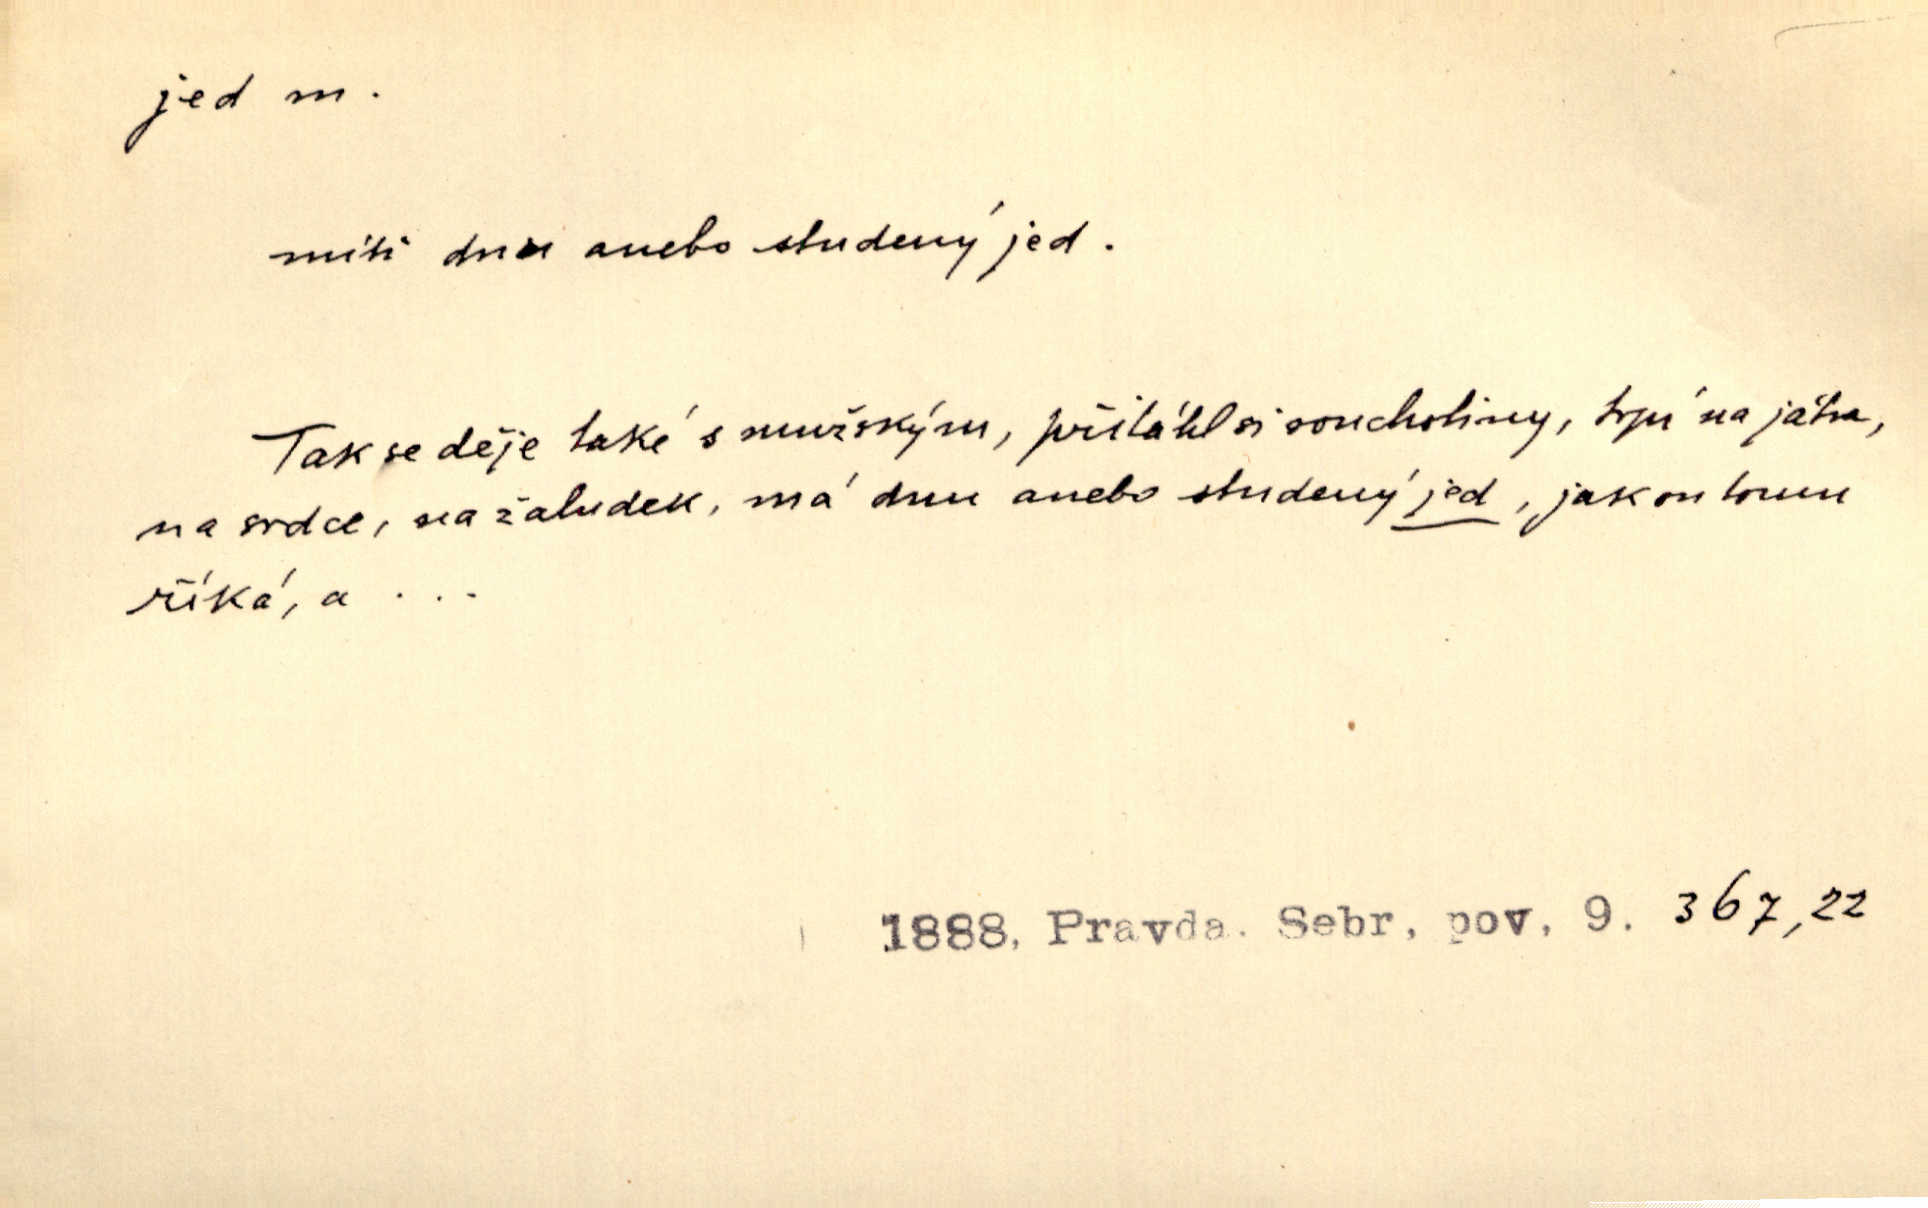 jed m.
míti dnu anebo studený jed.
Tak se děje také s mužským, přitáhl si souchotiny, trpí na játra,
na srdce, na žaludek, má dnu anebo studený jed, jak on tomu
říká, a ...
1888, Pravda. Sebr, pov, 9. 367,22